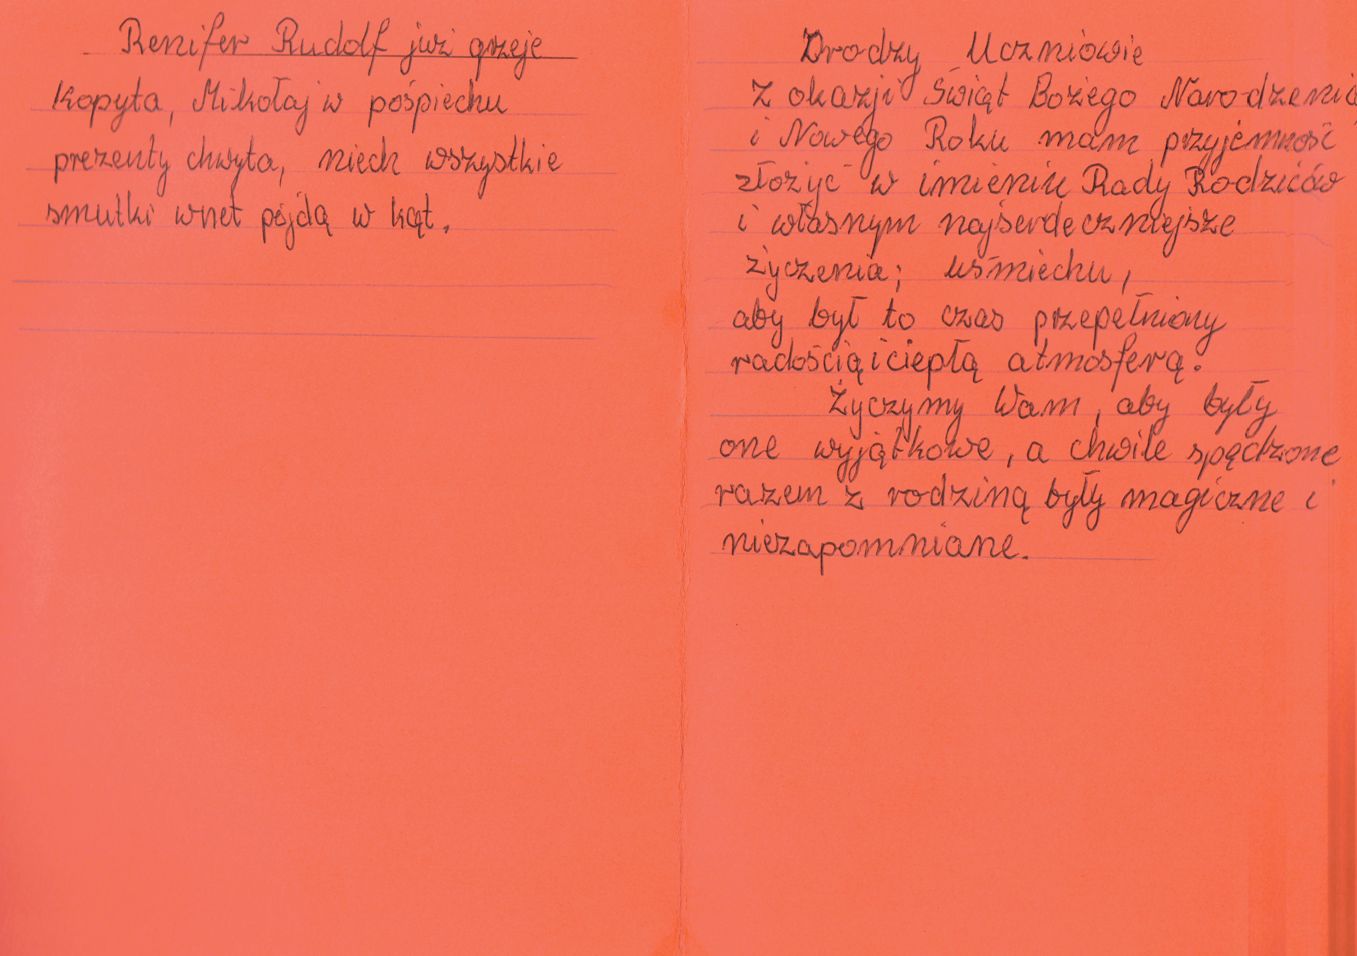 Renifer Rudolf już grzeje
kopyta, Mikołaj w pośpiechu
prezenty chwyta, niech wszystkie
smutki wnet pójdą w kąt.
Drodzy Uczniowie
Z okazji Świąt Bożego Narodzenia
i Nowego Roku mam przyjemność
złożyć w imieniu Rady Rodziców
i własnym najserdeczniejsze
życzenia; uśmiechu,
aby był to czas przepełniony
radością i ciepłą atmosferą.
Życzymy Wam, aby były
one wyjątkowe, a chwile spędzone
razem z rodziną były magiczne i
niezapomniane.